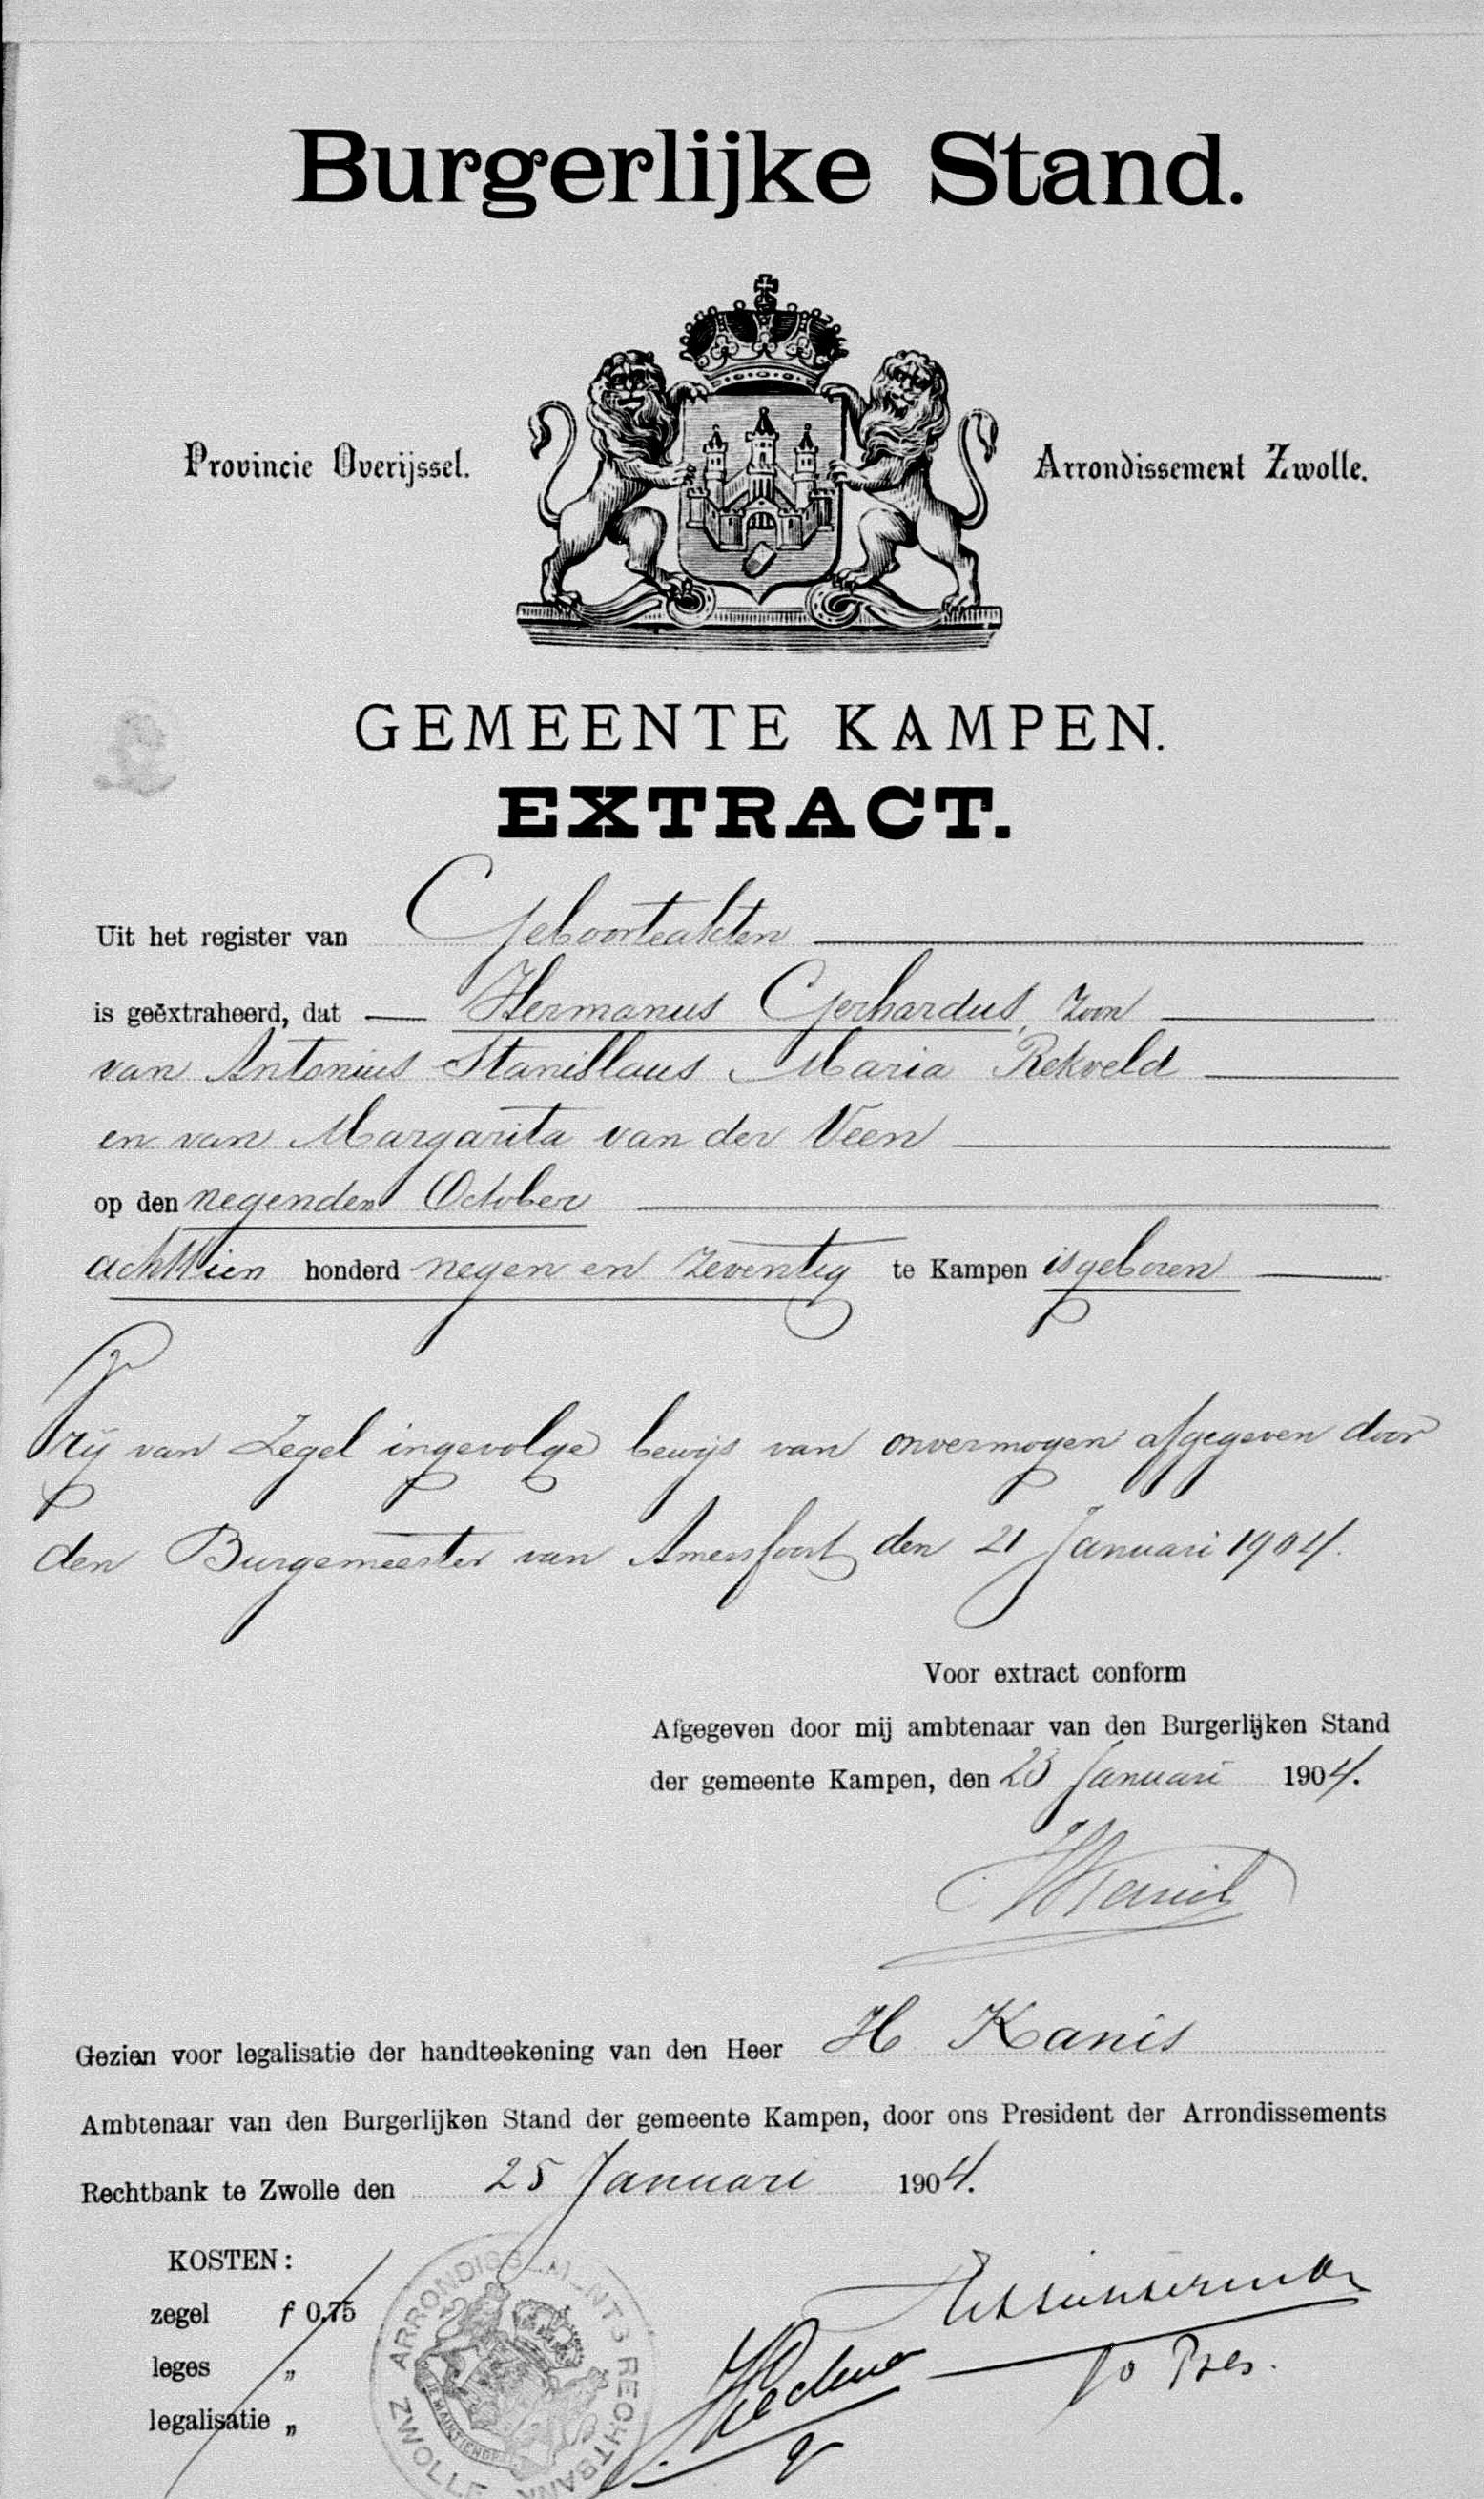 Burgerlijke Stand.
Provincie Overijssel.
Arrondissement Zwolle.
GEMEENTE KAMPEN.
EXTRACT.
Uit het register van Geboorteakten
is geëxtraheerd, dat Hermanus Gerhardus, zoon
van Antonius Stanislaus Maria Rekveld
en van Margarita van der Veen
op den negenden October
achttien honderd negen en zeventig te Kampen is geboren
Vrij van Zegel ingevolge bewijs van onvermogen afgegeven door
den Burgemeester van Amersfoort den 21 Januari 1904.
Voor extract conform
Afgegeven door mij ambtenaar van den Burgerlijken Stand
der gemeente Kampen, den 23 Januari 1904.
HKanis
Gezien voor legalisatie der handteekening van den Heer H Kanis
Ambtenaar van den Burgerlijken Stand der gemeente Kampen, door ons President der Arrondissements
Rechtbank te Zwolle den 25 Januari 1904.
KOSTEN:
zegel f 0,75
leges "
legalisatie "
ARRONDISSEMENTS RECHTBANK
ZWOLLE
JE MAINTIENDRAI